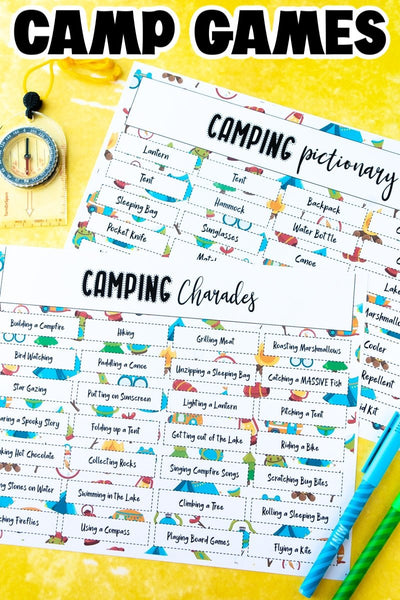 CAMP GAMES
CAMPING pictionary
Lantern
Tent
Backpack
Tent
Hammock
Water Bottle
Sleeping Bag
Sunglasses
Canoe
Pocket Knife
Lake
Marshmallows
Cooler
Repellent
Kit
CAMPING Charades
Building a Campfire
Hiking
Grilling Meat
Roasting Marshmallows
Bird Watching
Paddling a Canoe
Unzipping a Sleeping Bag
Catching a MASSIVE Fish
Star Gazing
Putting on Sunscreen
Lighting a Lantern
Pitching a Tent
a Spooky Story
Folding up a Tent
Getting out of the Lake
Riding a Bike
Hot Chocolate
Collecting Rocks
Singing Campfire Songs
Scratching Bug Bites
Stones on Water
Swimming in the Lake
Climbing a Tree
Rolling a Sleeping Bag
Fireflies
Using a Compass
Playing Board Games
Flying a Kite